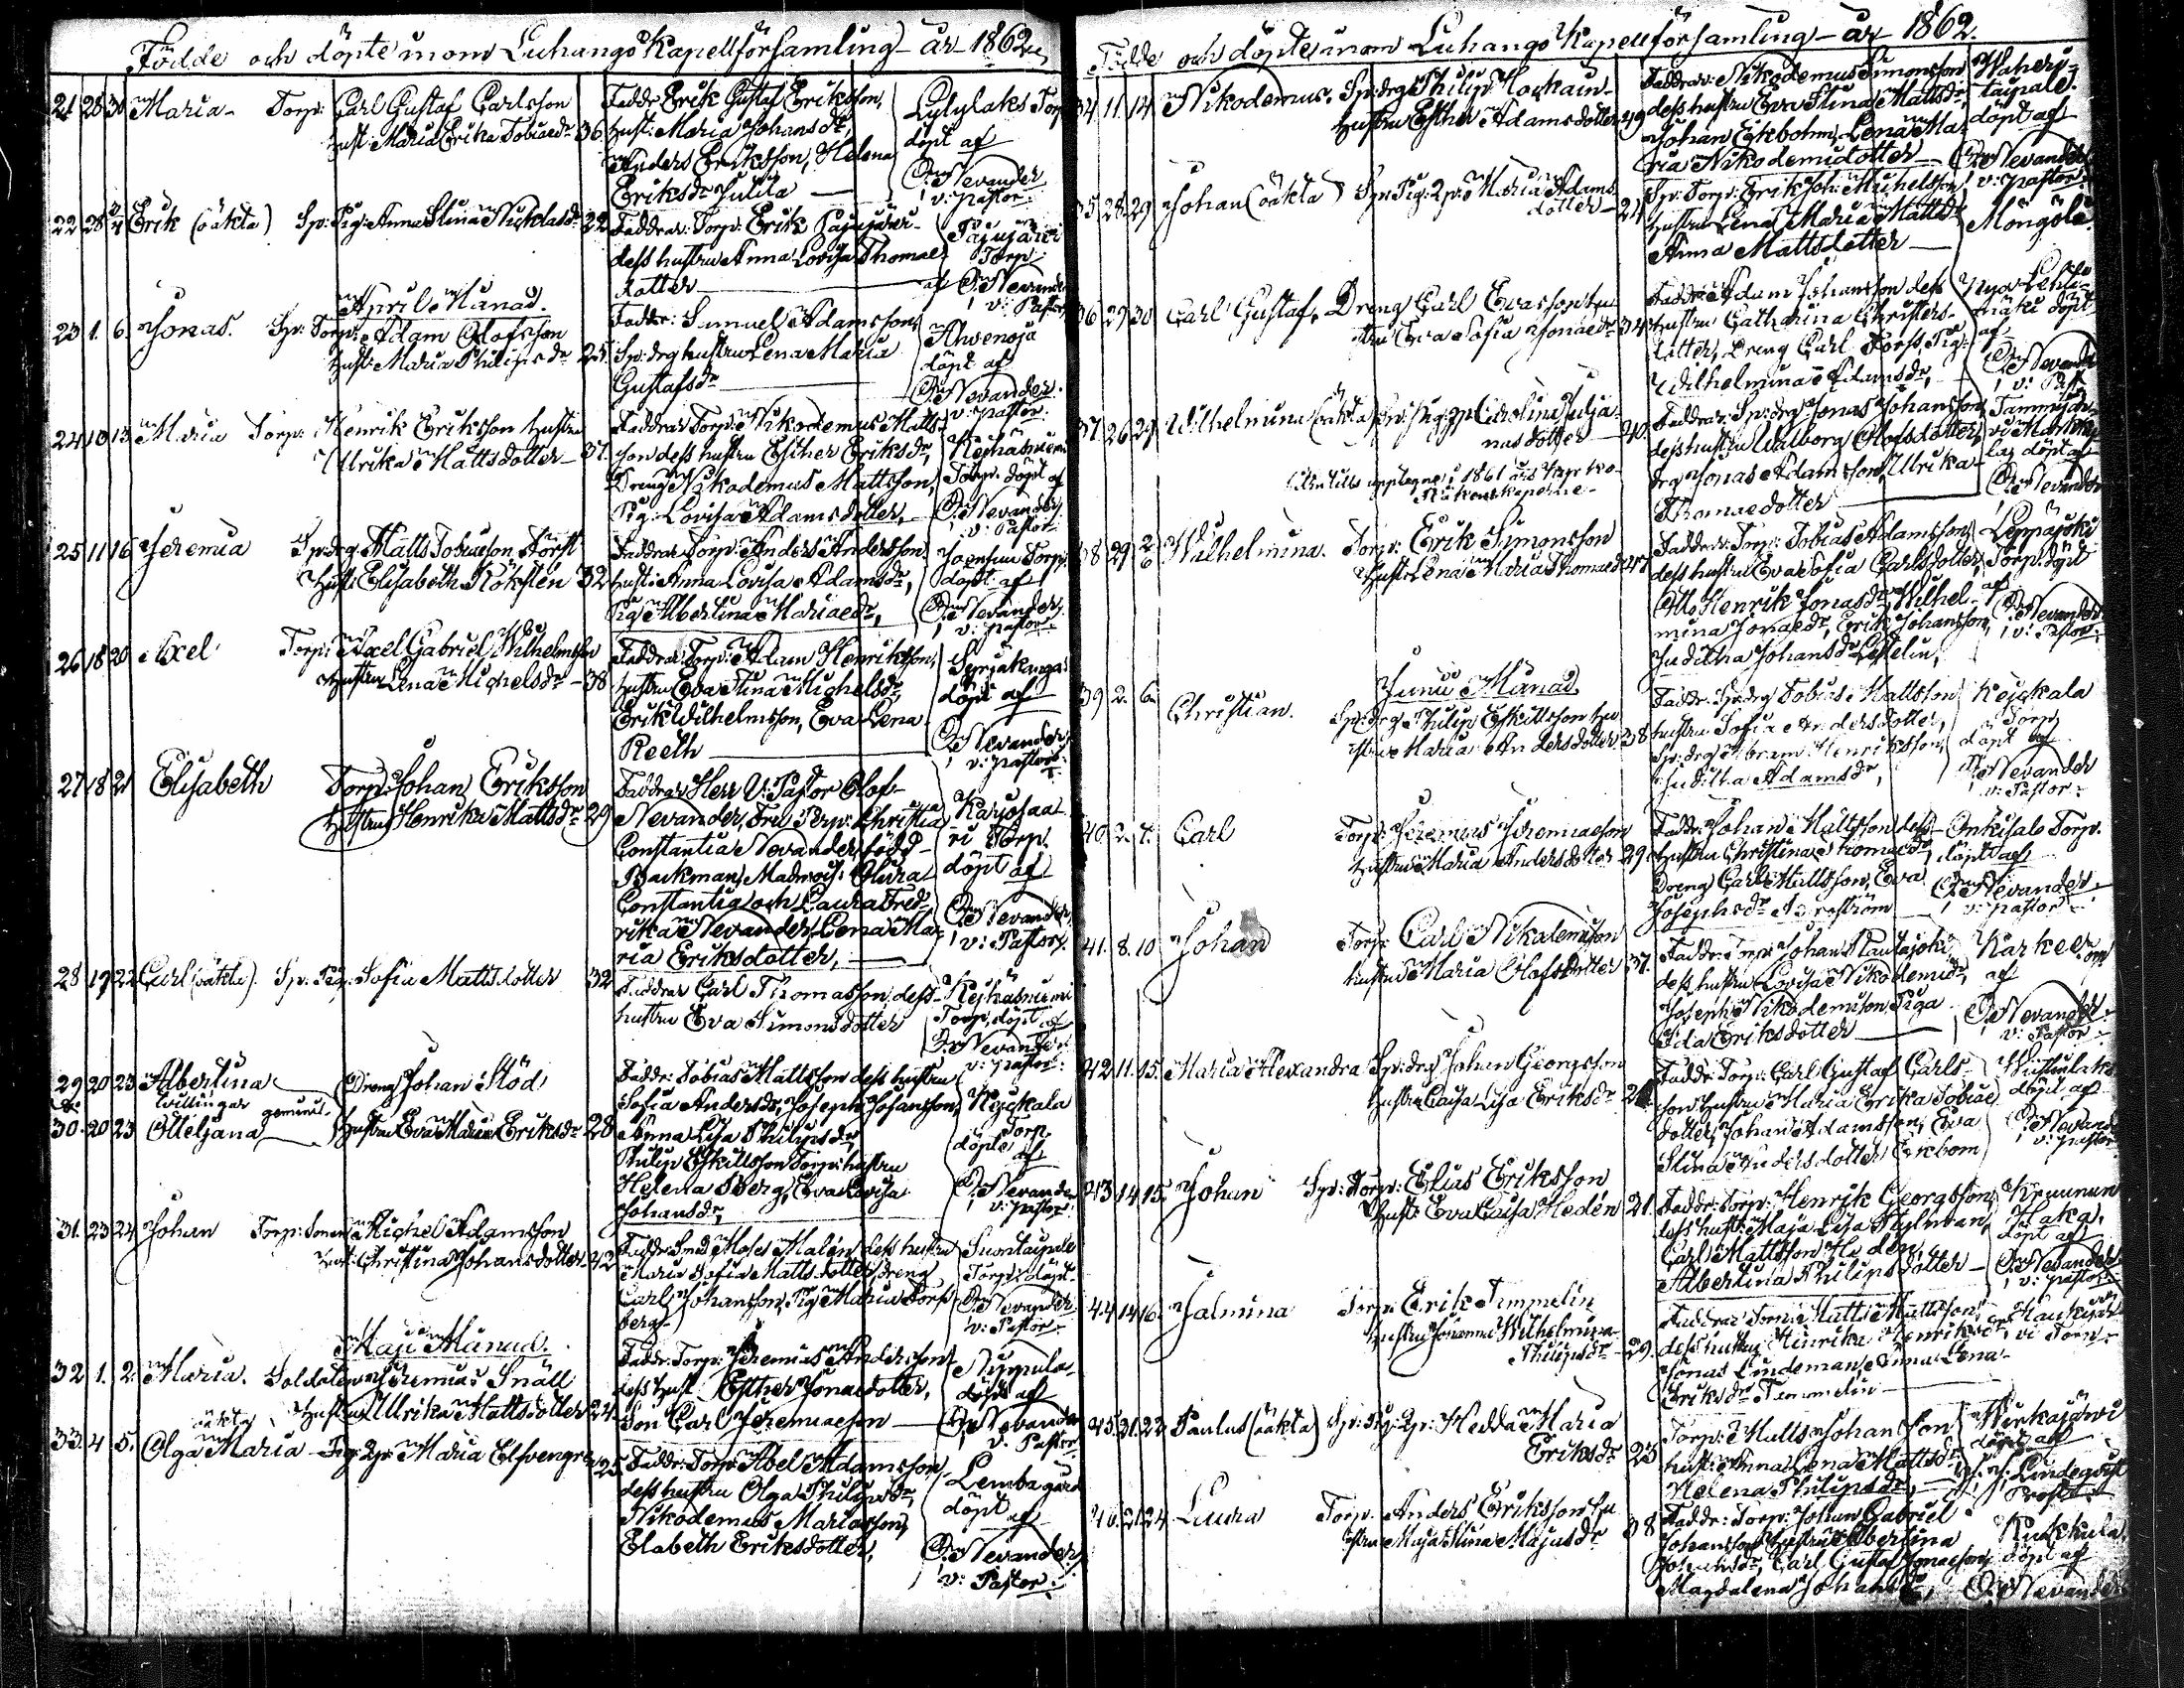 Födde och döpte inom Luhango Kapellförsamling år 1862
21 28 30 Maria Torp: Carl Gustaf Carlsson
Hust: Maria Erika Tobiaedr 36
Fadde Erik Gustaf Eriksson,
Hust: Maria Johansdr,
Anders Eriksson, Helena
Eriksdr Julita
Lylylaks Torp
döpt af
O. Nevander
v: pastor
22 28 2/4 Erik (oäkta) Sp: Pig: Anna Stina Nicklasdr 22
Faddrar: Torp: Erik Pajujärvi
dess hustru Anna Lovisa Thomae
dotter
Pajujärvi
Torp
af O. Nevander
v: Pastor
April Månad.
23 1. 6. Jonas. Sp: Torp: Adam Olofsson
Hust: Maria Philipsdr 25.
Faddr: Samuel Adamsson,
Sp: drg hustru Lena Maria
Gustafsdr
Ahvenoja
döpt af
O. Nevander.
v: pastor
24 10 13 Maria Torp: Henrik Eriksson hustru
Ulrika Mattsdotter 37.
Faddrar Torp: Nikodemus Matts
son dess hustru Esther Eriksdr,
Dreng Nikodemus Mattsson,
Pig: Lovisa Adamsdotter,
Keihäsniemi
Torp: döpt af
O. Nevander
v: Pastor
25 11 16 Jeremia Sp: drg Matts Tobiaeson Torst
Hust: Elisabeth Köksten 32
Faddrar Torp: Anders Andersson
hust: Anna Lovisa Adamsdr,
Pig Albertina Mariaedr,
Joensuu Torp:
döpt af
O. Nevander
v: pastor
26 18 20 Axel Torp: Axel Gabriel Wilhelmsson
Hustru Lena Michelsdr 38
Faddrar Torp: Adam Henriksson,
hustru Eva Stina Michelsdr,
Erik Wilhelmsson, Eva Lena
Reeth
döpt af
O. Nevander
v: pastor
27 18 21 Elisabeth Torp: Johan Eriksson
Hustru Henrika Mattsdr 29
Faddrar Herr V: Pastor Olof
Nevander, Fru Christina
Constantia Nevander född
Backman, Madmois: Olivia
Constantia och Laura Fred-
rika Nevander, Lena Ma-
ria Eriksdotter,
Karjosaa
ri Torp.
döpt af
O. Nevander
v: Pastor
28 19 22 Carl (oäkta). Sp: Pig: Sofia Mattsdotter 32
Faddrar Carl Thomasson dess
hustru Eva Simonsdotter
Keihäsniemi
Torp, döpt af
O. Nevander
v: pastor
29 20 23 Albertina Dreng Johan Stöd
tvillingar
30. 20 23 Otteljana Hustru Eva Maria Eriksdr 28
Faddr: Tobias Mattsson dess hustru
Sofia Andersdr, Joseph Johansson,
Anna Lisa Philipsdr,
Philip Eskillsson Torp: hustru
Helena Sberg, Eva Lovisa
Johansdr,
Keijkala
Torp
döpte af
O. Nevander
v: pastor
31. 23 24 Johan Torp: Sonen Michel Adamsson
Hust: Christina Johansdotter 42
Faddr: Smed Moses Malén, dess hustru
Maria Sofia Mattsdotter, dreng
Carl Johansson, Pig Maria Fors
berg
Suontaipale
Torp döpt
O. Nevander
v: Pastor
Maji Månad.
32 1. 2. Maria. Soldaten Jeremias Snäll
Hustru Ulrika Mattsdotter 24
Faddr: Torp: Jeremias Andersson
dess hust Esther Jonaedotter,
Son Carl Jeremiaeson
Nyppula
döpt af
O. Nevander
v. Pastor
oäkta
33. 4 5. Olga Maria Pig: Maria Elfvengren 25
Faddr: Torp: Abel Adamsson,
dess hustru Olga Philipsdr,
Nikodemus Mariasson,
Elabeth Eriksdotter,
Lemba gård
döpt
af
O. Nevander
v: Pastor
Födde och döpte inom Luhango Kapellförsamling år 1862.
34 11. 14 Nikodemus. Sp: drg Philip Hockain
Hustru Esther Adamsdotter 49
Faddrar: Nikodemus Simonsson
dess hustru Eva Stina Mattsdr,
Johan Ekbohm, Lena Ma-
ria Nikodemidotter
Waheri-
taipale.
döpt af
O. Nevander
v: pastor
35 28. 29 Johan (oäkta) Sp: Pig: Maria Adams
dotter 24
Sp: Torp: Erik Joh: Michelsson
Hustru Lena Maria Mattsdr
Anna Mattsdotter
Möngölä
36 29 30 Carl Gustaf, Dreng Carl Evasson hu
stru Eva Sofia Jonaedr 34
Faddr: Adam Johansson dess
hustru Catharina Christers-
dotter, Dreng Carl Fors, Pig:
Wilhelmina Adamsdr,
Nya Lehti-
mäki döpt
af
O. Nevander
v: Past
37. 26 29 Wilhelmina (oäkta) Sp: Pig: Carolina Julja-
nasdotter 40
Faddrar: Sp: drg Jonas Johansson
dess hustru Walborg Olofsdotter,
drg Jonas Adamsson, Ulrika
Thomaedotter
Tammijär-
vi
döpt af
O. Nevander
38 29 2/6 Wilhelmina. Torp: Erik Simonsson
Hustr: Lena Maria Thomaedr 47
Faddrar: Torp: Tobias Adamsson,
dess hustru Eva Sofia Carlsdotter,
Otto Henrik Jonasdr, Wilhel-
mina Jonaedr, Erik Johansson,
Juditha Johansdr Lestelin,
Leppäjoki
Torp: döpt
af
O. Nevander
v: Pastor
Junii Månad.
39 2. 6. Christian. Sp: drg Philip Eskillsson hu
stru Maria Andersdotter 38
Faddr: Sp: drg Tobias Mattsson
hustru Sofia Andersdotter,
Sp: drg Abram Henriksson,
Juditha Adamsdr,
Keijkala
Torp
döpt af
O. Nevander
v: Pastor
40. 2. 7. Carl Torp: Jeremias Jeremiaeson
Hustru Maria Andersdotter 29.
Faddr: Johan Mattsson dess
Hustru Christina Thomaedr
Dreng Carl Mattsson, Eva
Josephsdr
Onkisalo Torp.
döpt af
O. Nevander.
v: pastor
41. 8. 10 Johan Torp: Carl Nikalemison
hustru Maria Olofsdotter 37.
Faddr: Torp: Johan Rautajoki
dess hustru Lovisa Nikodemidr,
Joseph Nikodemison, Piga
Eda Eriksdotter
af
O. Nevander
v: Pastor
42. 11. 15. Maria Alexandra Sp: drg Johan Georgsson
Hustru Caisa Lisa Eriksdr
Fadde: Torp: Carl Gustaf Carls-
son hustru Maria Erika Tobiae
dotter, Johan Adamsson, Eva
Stina Andersdotter Enebom
döpt af
O. Nevander
v: pastor
43 14 15. Johan Sp: Torp: Elias Eriksson
Hust: Eva Caisa Hedén 21.
Faddr: Torp: Henrik Georgsson,
dess hust: Maja Lisa Stylman,
Carl Mattsson Heden,
Albertina Philipsdotter
Kruunun
Haka.
döpt af
O. Nevander
v: pastor
44 14 16. Jalmina Torp: Erik Timmelin
Hustru Johanna Wilhelmina
Philipsdr 29.
Faddrar Torp: Matts Mattsson,
dess hustru Henrika Henriksdr,
Jonas Lindeman, Anna Lena
Eriksdr Timmelin
Haukijär
vi Torp
45. 21. 22 Paulus (oäkta) Sp: Pig: Hedda Maria
Eriksdr 23
Torp: Matts Johansson
hust: Anna Lena Mattsdr,
Helena Philipsdr,
Wirkajärvi
döpt af
Lindeqvist
Prost
46. 21. 24 Laura Torp: Anders Eriksson hu
stru Maja Stina Majasdr 38
Faddr: Torp: Johan Gabriel
Johansson hustru Albertina
Johansdr, Carl Gustaf Jonaeson,
Magdalena Johansdr,
Kukkula
döpt af
O. Nevander